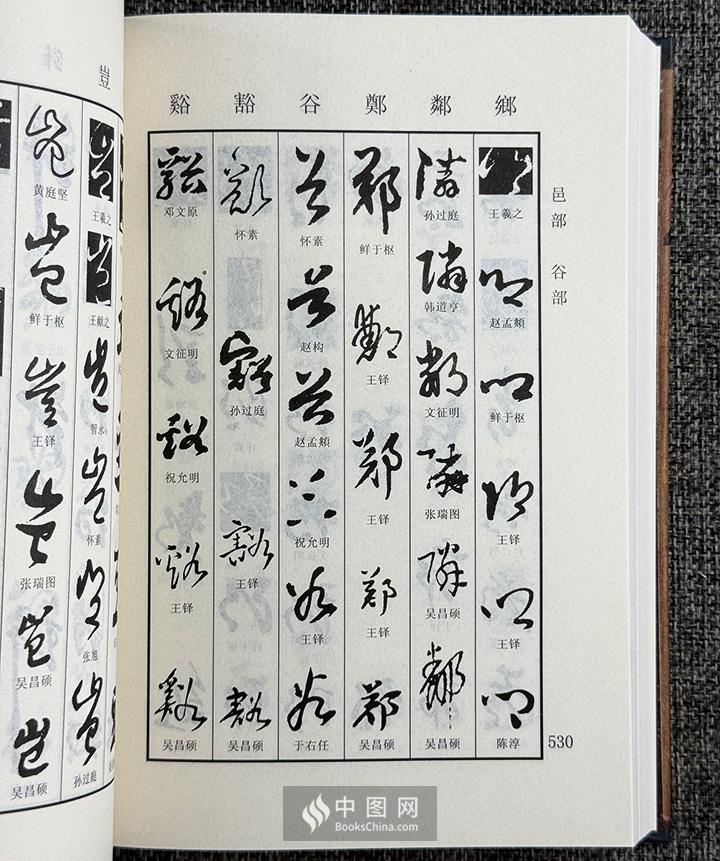 邑部 谷部
鄉
王羲之
赵孟頫
鲜于枢
王铎
王铎
陈淳
鄰
孙过庭
韩道亨
文征明
张瑞图
吴昌硕
吴昌硕
鄭
鲜于枢
王铎
王铎
王铎
吴昌硕
谷
怀素
赵构
赵孟頫
祝允明
王铎
于右任
豁
怀素
孙过庭
王铎
吴昌硕
谿
邓文原
文征明
祝允明
王铎
吴昌硕
530
豈
王羲之
王献之
智永
怀素
张旭
孙过庭
黄庭坚
鲜于枢
王铎
张瑞图
吴昌硕
吴昌硕
中图网
BooksChina.com